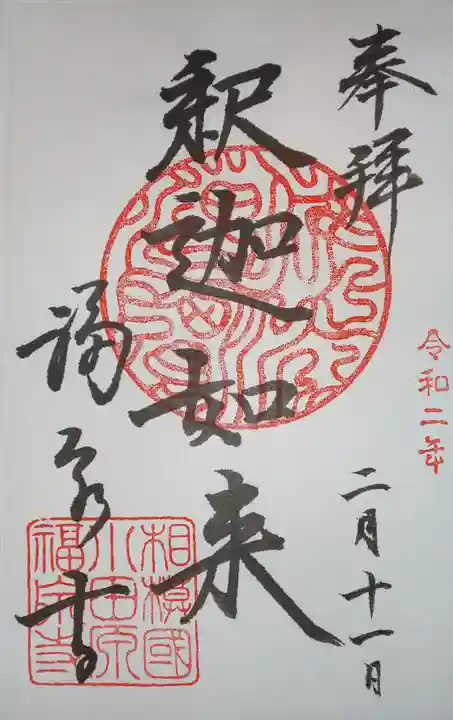 奉拝
令和二年
二月十一日
釈迦如来
福泉寺
相模國
小田原
福泉寺